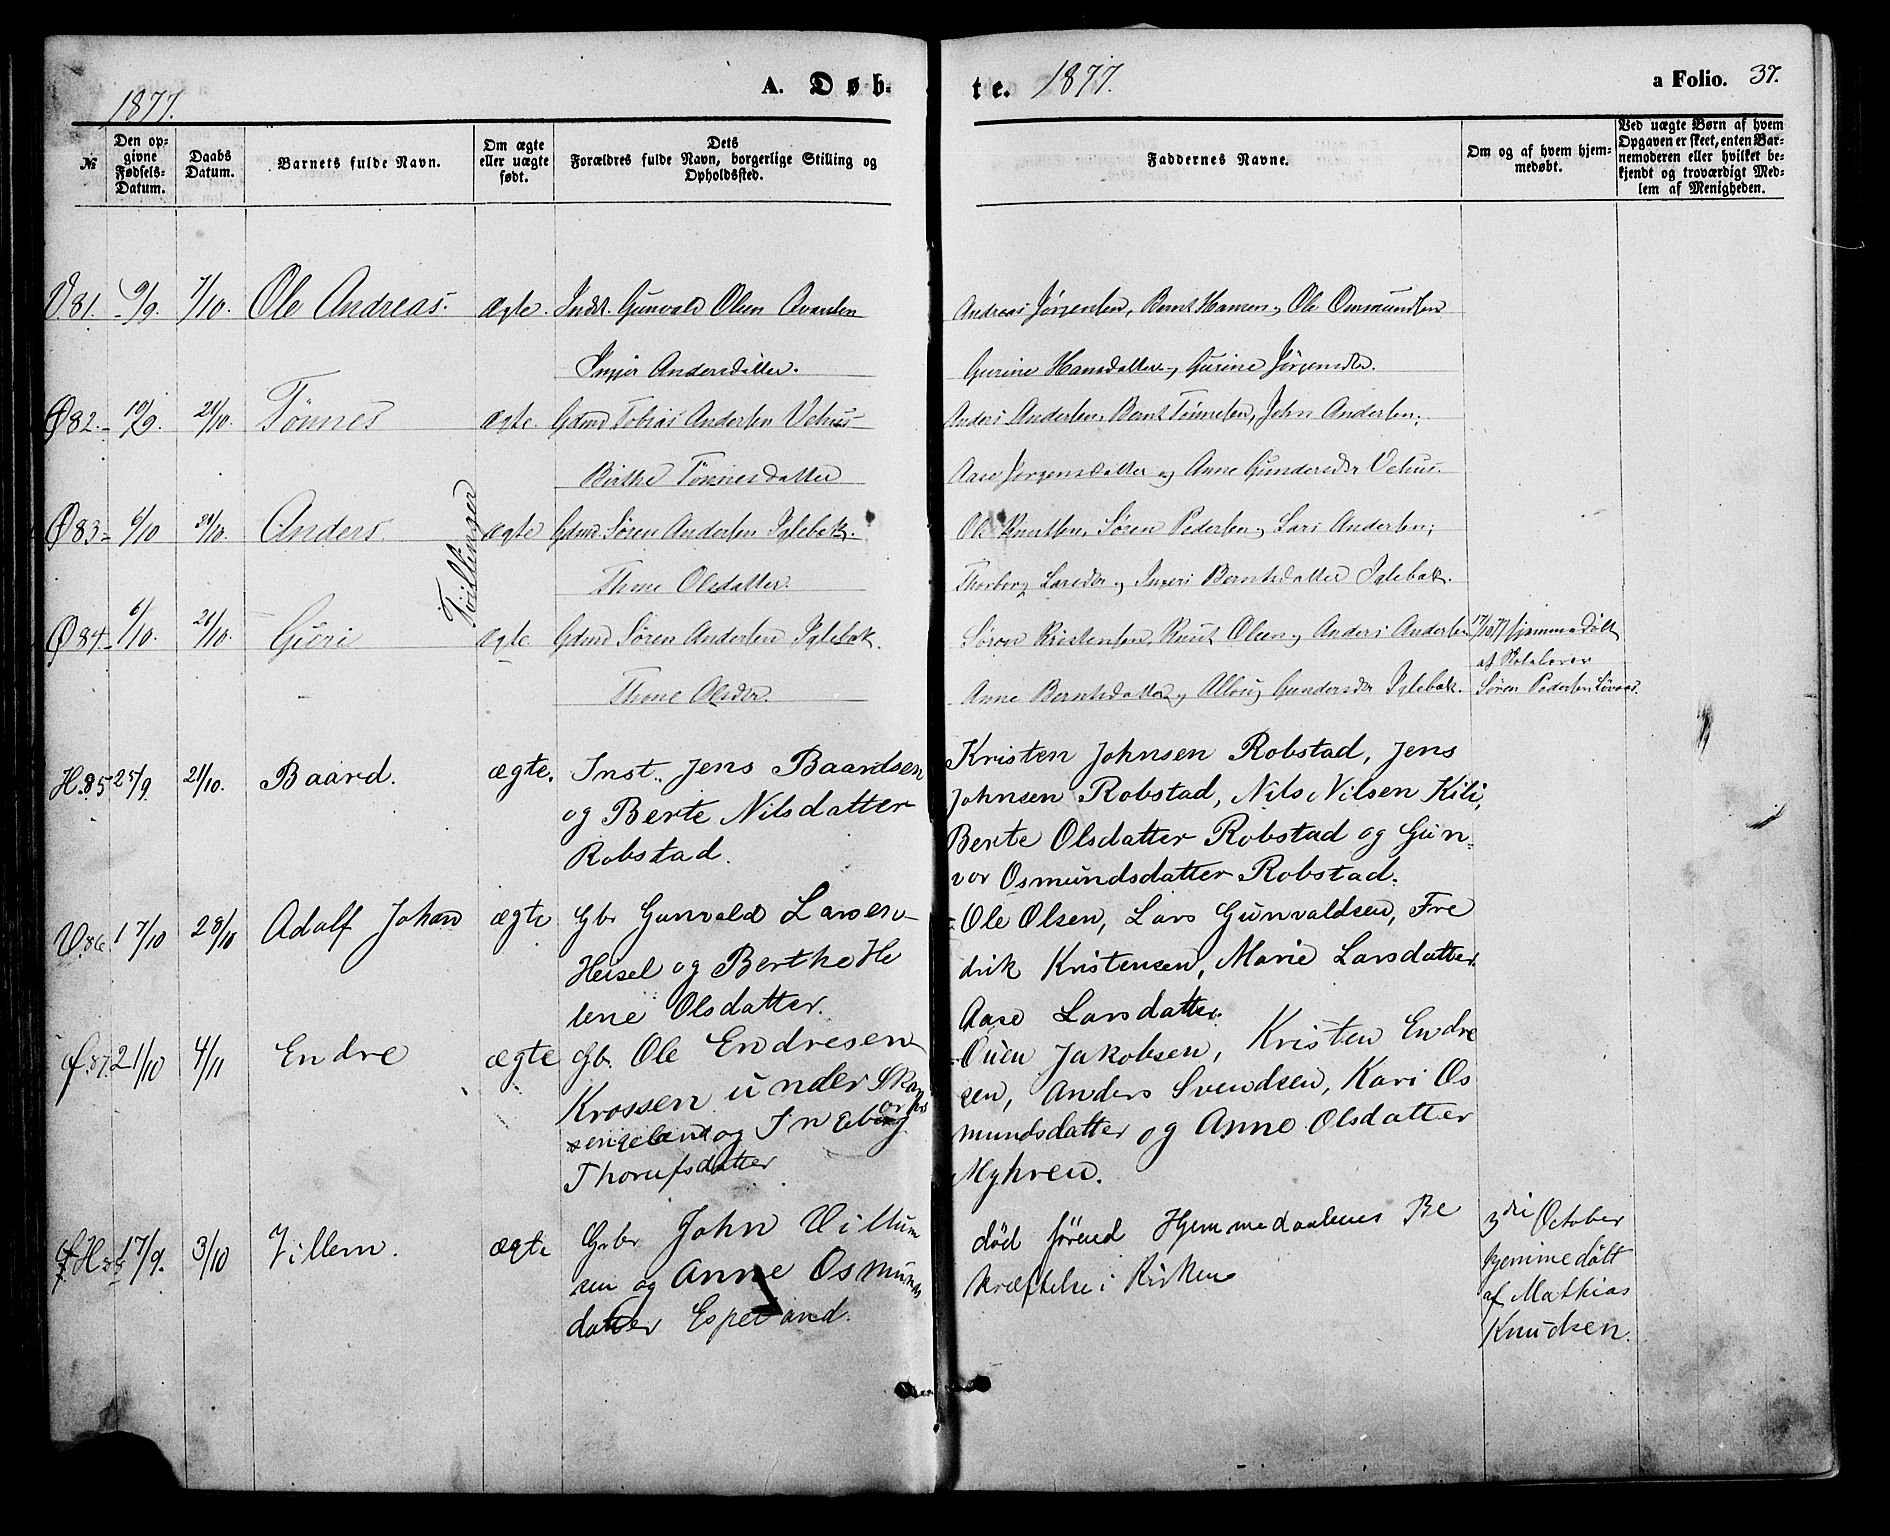 1877.
A. Døb-
te. 1877.
a Folio. 37.
№
Den op-
givne
Fødsels-
Datum.
Daabs
Datum.
Barnets fulde Navn.
Om ægte
eller uægte
født.
Dets
Forældres fulde Navn, borgerlige Stilling og
Opholdssted.
Faddernes Navne.
Om og af hvem hjem-
medøbt.
Ved uægte Børn af hvem
Opgaven er skeet, enten Bar-
nemoderen eller hvilket be-
kjendt og troværdigt Med-
lem af Menigheden.
V. 81. 9/9. 7/10. Ole Andreas. ægte. Gunvald Olsen
Andersdatter.
Andreas Jørgensen, Bernt Hansen, Ole Osmundsen
Gurine Hansdatter, Gurine Jørgensdr.
Ø 82. 10/9. 21/10. Tønnes ægte. Gdmd Tobias Andersen Vehus
Birthe Tønnesdatter
Anders Andersen, Bernt Tønnesen, John Andersen,
Aase Jørgensdatter og Anne Gundersdr Vehus
Ø 83 6/10 Anders. ægte Gdmd Søren Andersen Iglebæk.
Thone Olsdatter.
Ole Knutsen, Søren Pedersen, Lars Andersen,
Thorborg Larsdr og Berntsdatter Iglebæk.
Tvillinger
Ø 84. 6/10. Guri ægte Gdmd Søren Andersen Iglebæk.
Thone Olsdr.
Søren Kristensen, Knut Olsen og Anders Andersen
Anne Berntsdatter, Gundersdr Iglebæk.
hjemmedøbt
af Skolelærer
Søren Pedersen
H. 85 25/9 21/10. Baard. ægte. Inst. Jens Baardsen
og Berte Nilsdatter
Robstad.
Kristen Johnsen Robstad, Jens
Johnsen Robstad, Nils Nilsen Kili,
Berte Olsdatter Robstad og Gun-
vor Osmundsdatter Robstad.
V. 86. 17/10 28/10 Adolf Johan ægte Gbr Gunvald Larsen
Heisel og Berthe He
lene Olsdatter.
Ole Olsen, Lars Gunvaldsen, Fre
drik Kristensen, Marie Larsdatter
Aase Larsdatter.
87. 21/10 4/11 Endre ægte Gb. Ole Endresen
Krossen under
og Ingeborg
Thorufsdatter
Ouen Jakobsen, Kristen Endre
sen, Anders Svendsen, Kari Os
mundsdatter og Anne Olsdatter
Myhren.
H 88 17/9. 3/10 Villem. ægte Gbr John Villum
sen og Anne Osmunds
datter Espeland.
død førend Hjemmedaabens Be
kræftelse i Kirken
3die October
hjemmedøbt
af Mathias
Knudsen.